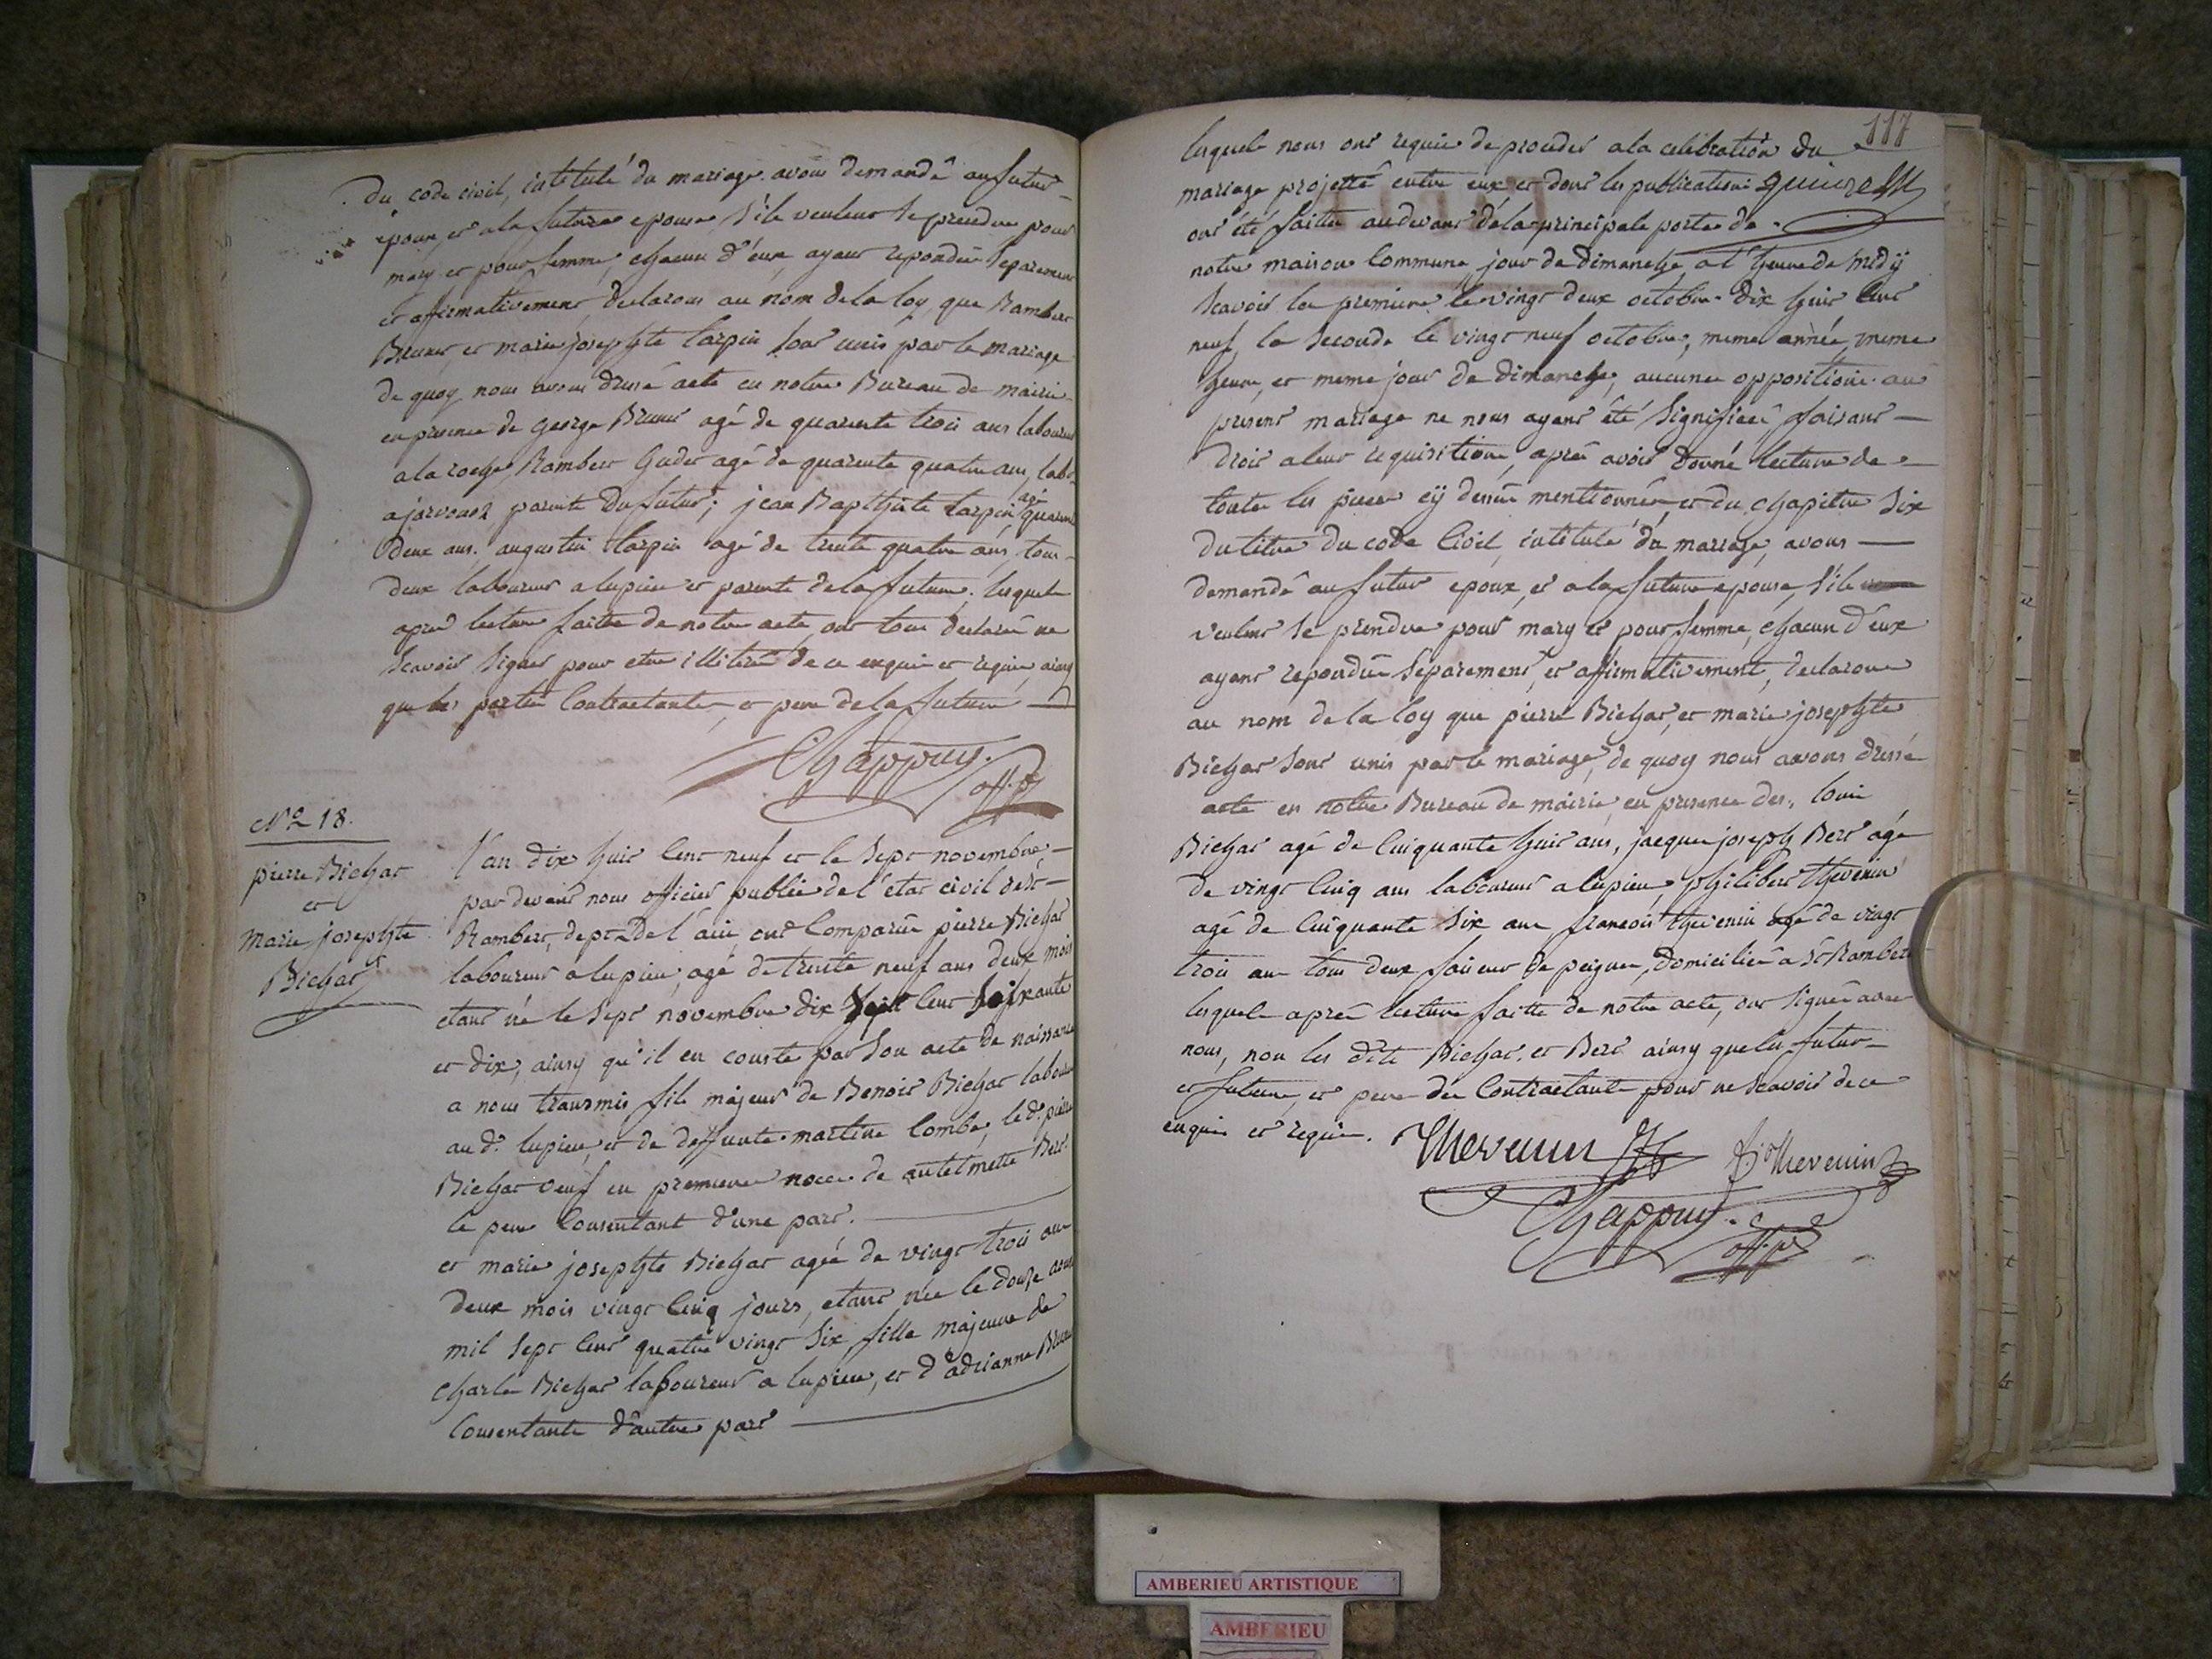 du code civil, intitulé du mariage. avons demandé au futur
époux, et a la future epouse, s'ils veulent se prendre pour
mary et pour femme, chacun d'eux ayant repondu separement
et affirmativement, declarons au nom de la loy, que Rambert
Brunet et marie josephte Carpin sont unis par le mariage
de quoy nous avons dressé acte en notre Bureau de mairie
en presence de George Brunet agé de quarente trois ans laboureur
a la roche, Rambert Gudet agé de quarente quatre ans, labr
a jorvonoz parents du futur; jean Baptiste Carpin agé quarente
deux ans. augustin Carpin agé de trente quatre ans, tous
deux laboureurs a lupieu et parents de la future; lesquels
aprés lecture faitte de notre acte ont tous declaré ne
scavoir signer pour etre illiteré de ce enquis et requis, ainsy
que les parties Contractantes et pere de la future
Chappuy.
off. p
No 18.
pierre Bichat
et
Marie josephte
Bichat
l'an dix huit cent neuf et le sept novembre
par devant nous officier public de l'etat civil de st
Rambert, dept de l'ain, ont Comparu pierre Bichat
laboureur a lupieu, agé de trente neuf ans deux mois
etant né le sept novembre dix sept cent soixante
et dix, ainsy qu'il en conste par son acte de naissance
a nous transmis fils majeur de Benoit Bichat laboureur
au dt lupieu, et de deffunte martine Combe, le dt pierre
Bichat veuf en premiere noce de antelmette Berr
le pere Consentant d'une part.
et marie josephte Bichat agée de vingt trois ans
deux mois vingt cinq jours, etant née le douze aout
mil sept cent quatre vingt six, fille majeure de
Charle Bichat laboureur a lupieu, et d'adrianne Brun
Consentants d'autre part
117
lesquels nous ont requis de proceder a la celebration du
mariage projetté entre eux et dont les publications
ont été faittes au devant de la principale porte de
notre maison Commune jour de Dimanche a l'heure de midÿ
scavoir la premiere le vingt deux octobre dix huit cent
neuf, la seconde le vingt neuf octobre, meme année, meme
heure, et meme jour de Dimanche, aucune opposition au
present mariage ne nous ayant été signifiée, faisant
droit a leur requisition, aprés avoir donné lecture de
toutes les pieces cÿ dessus mentionnées et du chapitre six
du titre du code Civil, intitulé du mariage, avons
demandé au futur epoux, et a la future epouse, s'ils
veulent se prendre pour mary et pour femme, chacun d'eux
ayant repondu separement, et affirmativement, declarons
au nom de la loy que pierre Bichat, et marie josephte
Bichat sont unis par le mariage, de quoy nous avons dressé
acte en notre Bureau de mairie, en presence des, Louis
Bichat agé de Cinquante huit ans, jacque joseph Berr agé
de vingt Cinq ans laboureurs a lupieu, philibert thevenin
agé de Cinquante six ans francois thevenin agé de vingt
trois ans tous deux faiseurs de peignes, domiciliés a St Rambert
lesquels aprés lecture faitte de notre acte, ont signé avec
nous, non les dits Bichat. et Berr ainsy que les futur
et future, et pere des Contractants pour ne scavoir de ce
enquis et requis.
Thevenin
fs Thevenin
Chappuy.
off. p
AMBERIEU ARTISTIQUE
AMBERIEU